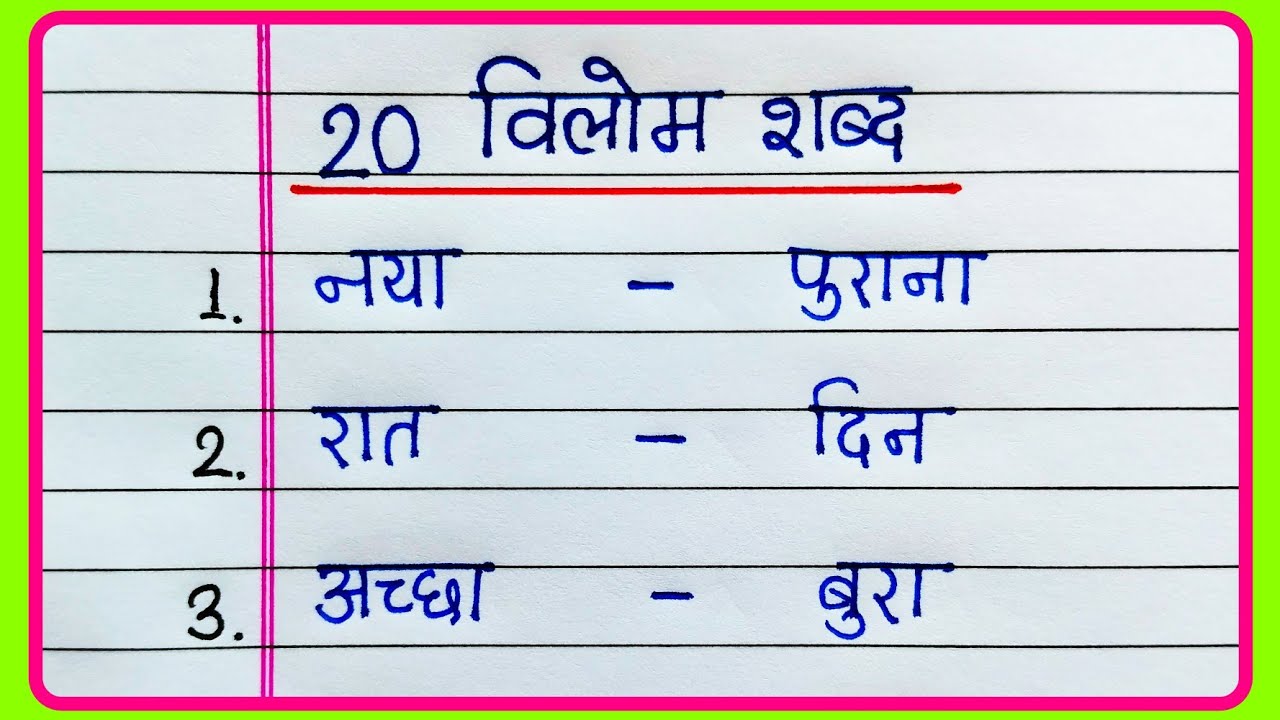 20 विलोम शब्द
1. नया - पुराना
2. रात - दिन
3. अच्छा - बुरा